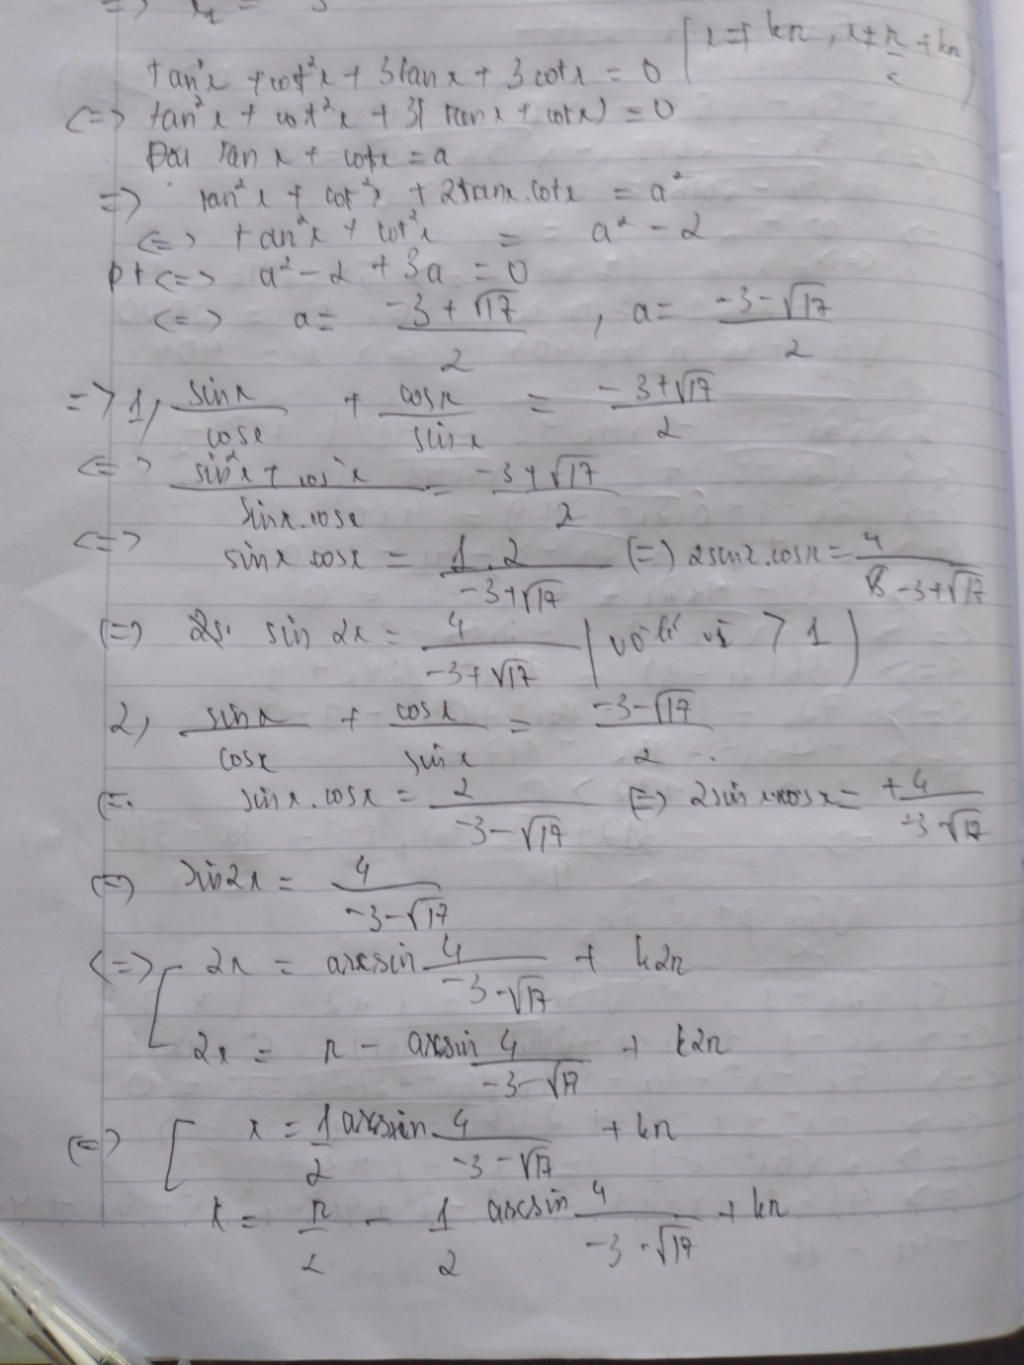 tan²x + cot²x + 3tanx + 3cotx = 0 (x ≠ kπ, x ≠ π/2 + kπ)
<=> tan²x + cot²x + 3( tanx + cotx) = 0
Đặt tan x + cotx = a
=> tan²x + cot²x + 2tanx.cotx = a²
<=> tan²x + cot²x = a² - 2
pt <=> a² - 2 + 3a = 0
<=> a = (-3 + √17)/2 , a = (-3 - √17)/2
=> 1, sinx/cosx + cosx/sinx = (-3+√17)/2
<=> (sin²x + cos²x)/(sinx.cosx) = (-3+√17)/2
<=> sinx.cosx = 1.2/(-3+√17) (=) 2sinx.cosx = 4/(-3+√17)
(=) sin 2x = 4/(-3+√17) (vô lí vì > 1)
2, sinx/cosx + cosx/sinx = (-3-√17)/2
(=. sinx.cosx = 2/(-3-√17) (=) 2sinx.cosx = +4/(-3-√17)
(=) sin2x = 4/(-3-√17)
<=> [ 2x = arcsin 4/(-3-√17) + k2π
2x = π - arcsin 4/(-3-√17) + k2π
(=) [ x = 1/2 arcsin 4/(-3-√17) + kπ
x = π/2 - 1/2 arcsin 4/(-3-√17) + kπ